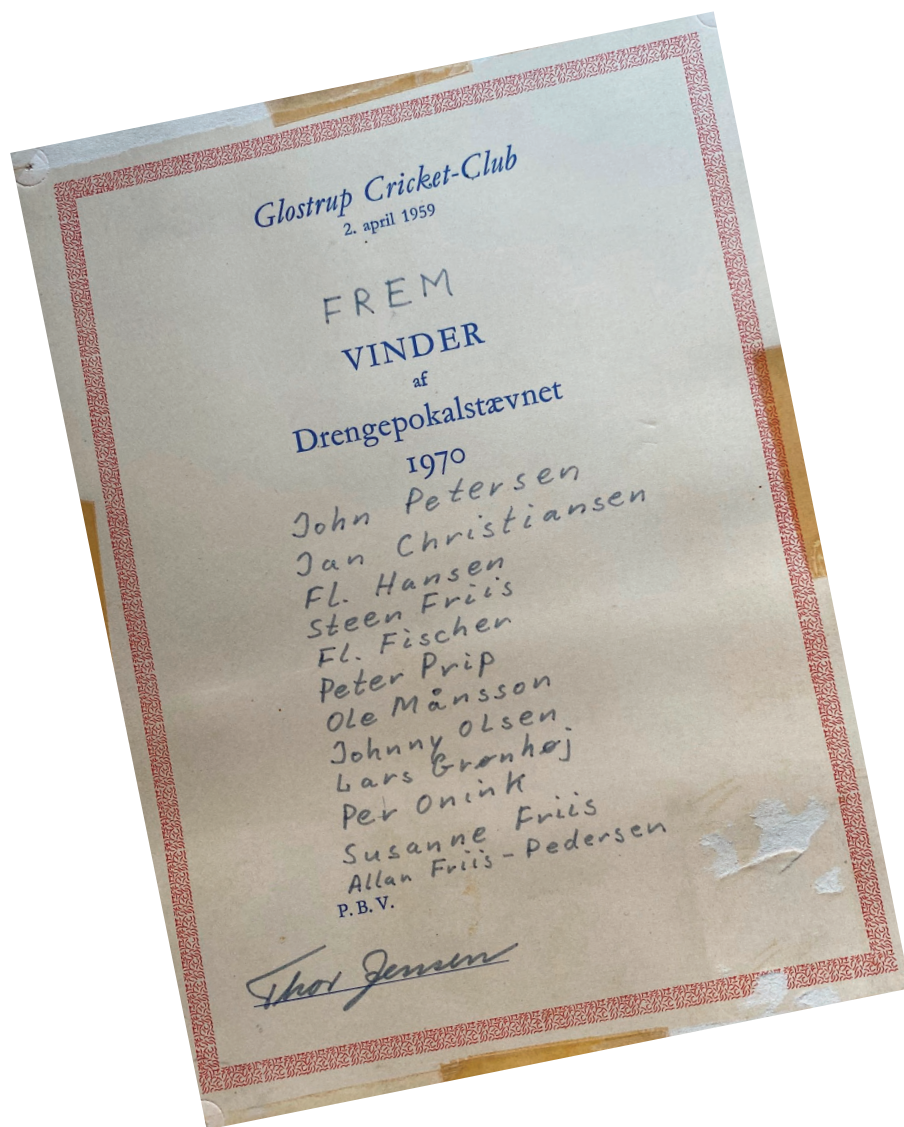 Glostrup Cricket-Club
2. april 1959
FREM
VINDER
af
Drengepokalstævnet
1970
John Petersen
Jan Christiansen
Fl. Hansen
Steen Friis
Fl. Fischer
Peter Prip
Ole Månsson
Johnny Olsen
Lars Grønhøj
Per Onink
Susanne Friis
Allan Friis-Pedersen
P. B. V.
Thor Jensen